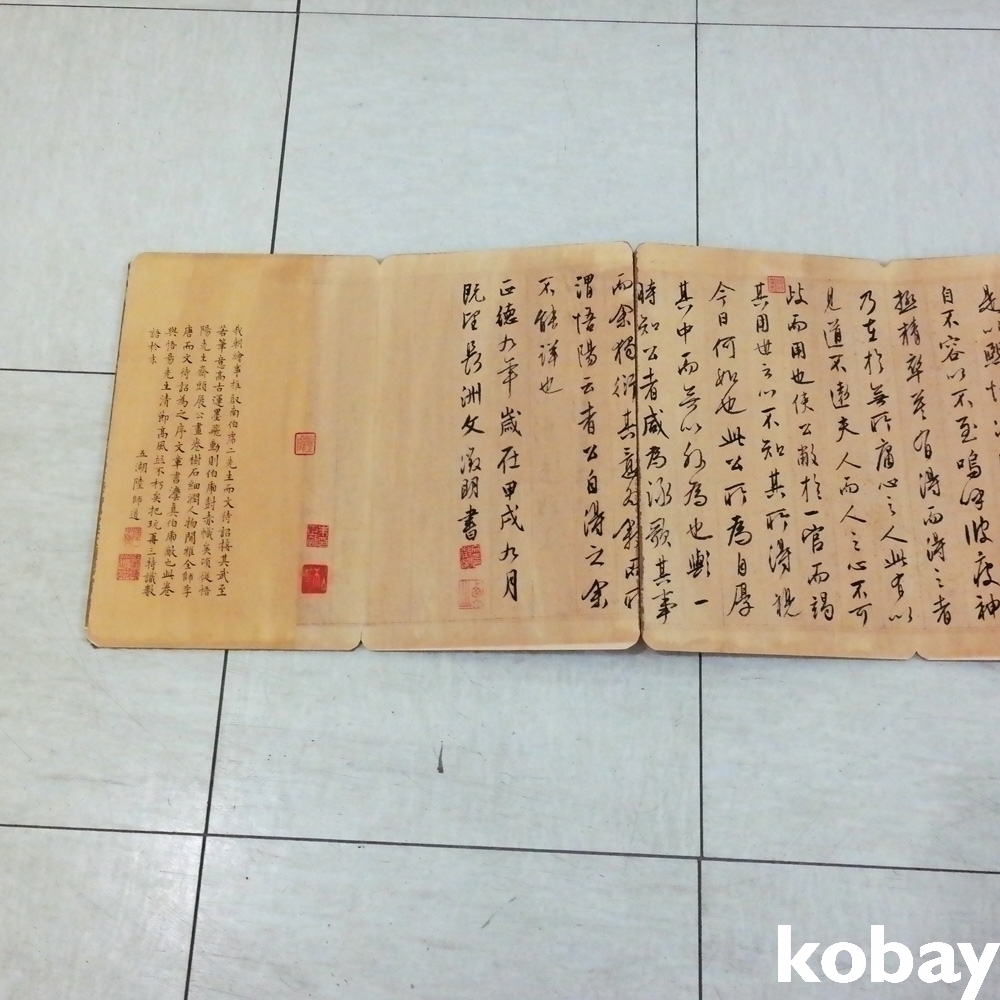 自不容以不至嗚呼彼疲神
極精卒莫有得而得之者
乃在於無所庸心之人此有以
見道不遠夫人而人之心不可
歧而用也使公敝於一官而竭
其用世之心不知其所得視
今日何如也此公所為自得
其中而無以外為也歟一
時知公者咸為詠歌其事
而余獨衍其意
謂悟陽云者公自得之余
不能詳也
正德九年歲在甲戌九月
既望長洲文徵明書
我朝繪事推
若筆意高古運墨飛動則
陽先生齋頭展公畫卷樹石細潤人物閒雅全師李
唐而文待詔為之序文章書法真伯虎敵也此卷
與悟陽先生清節高風並不朽矣把玩再三特識數
語於末
五湖陸師道
kobay